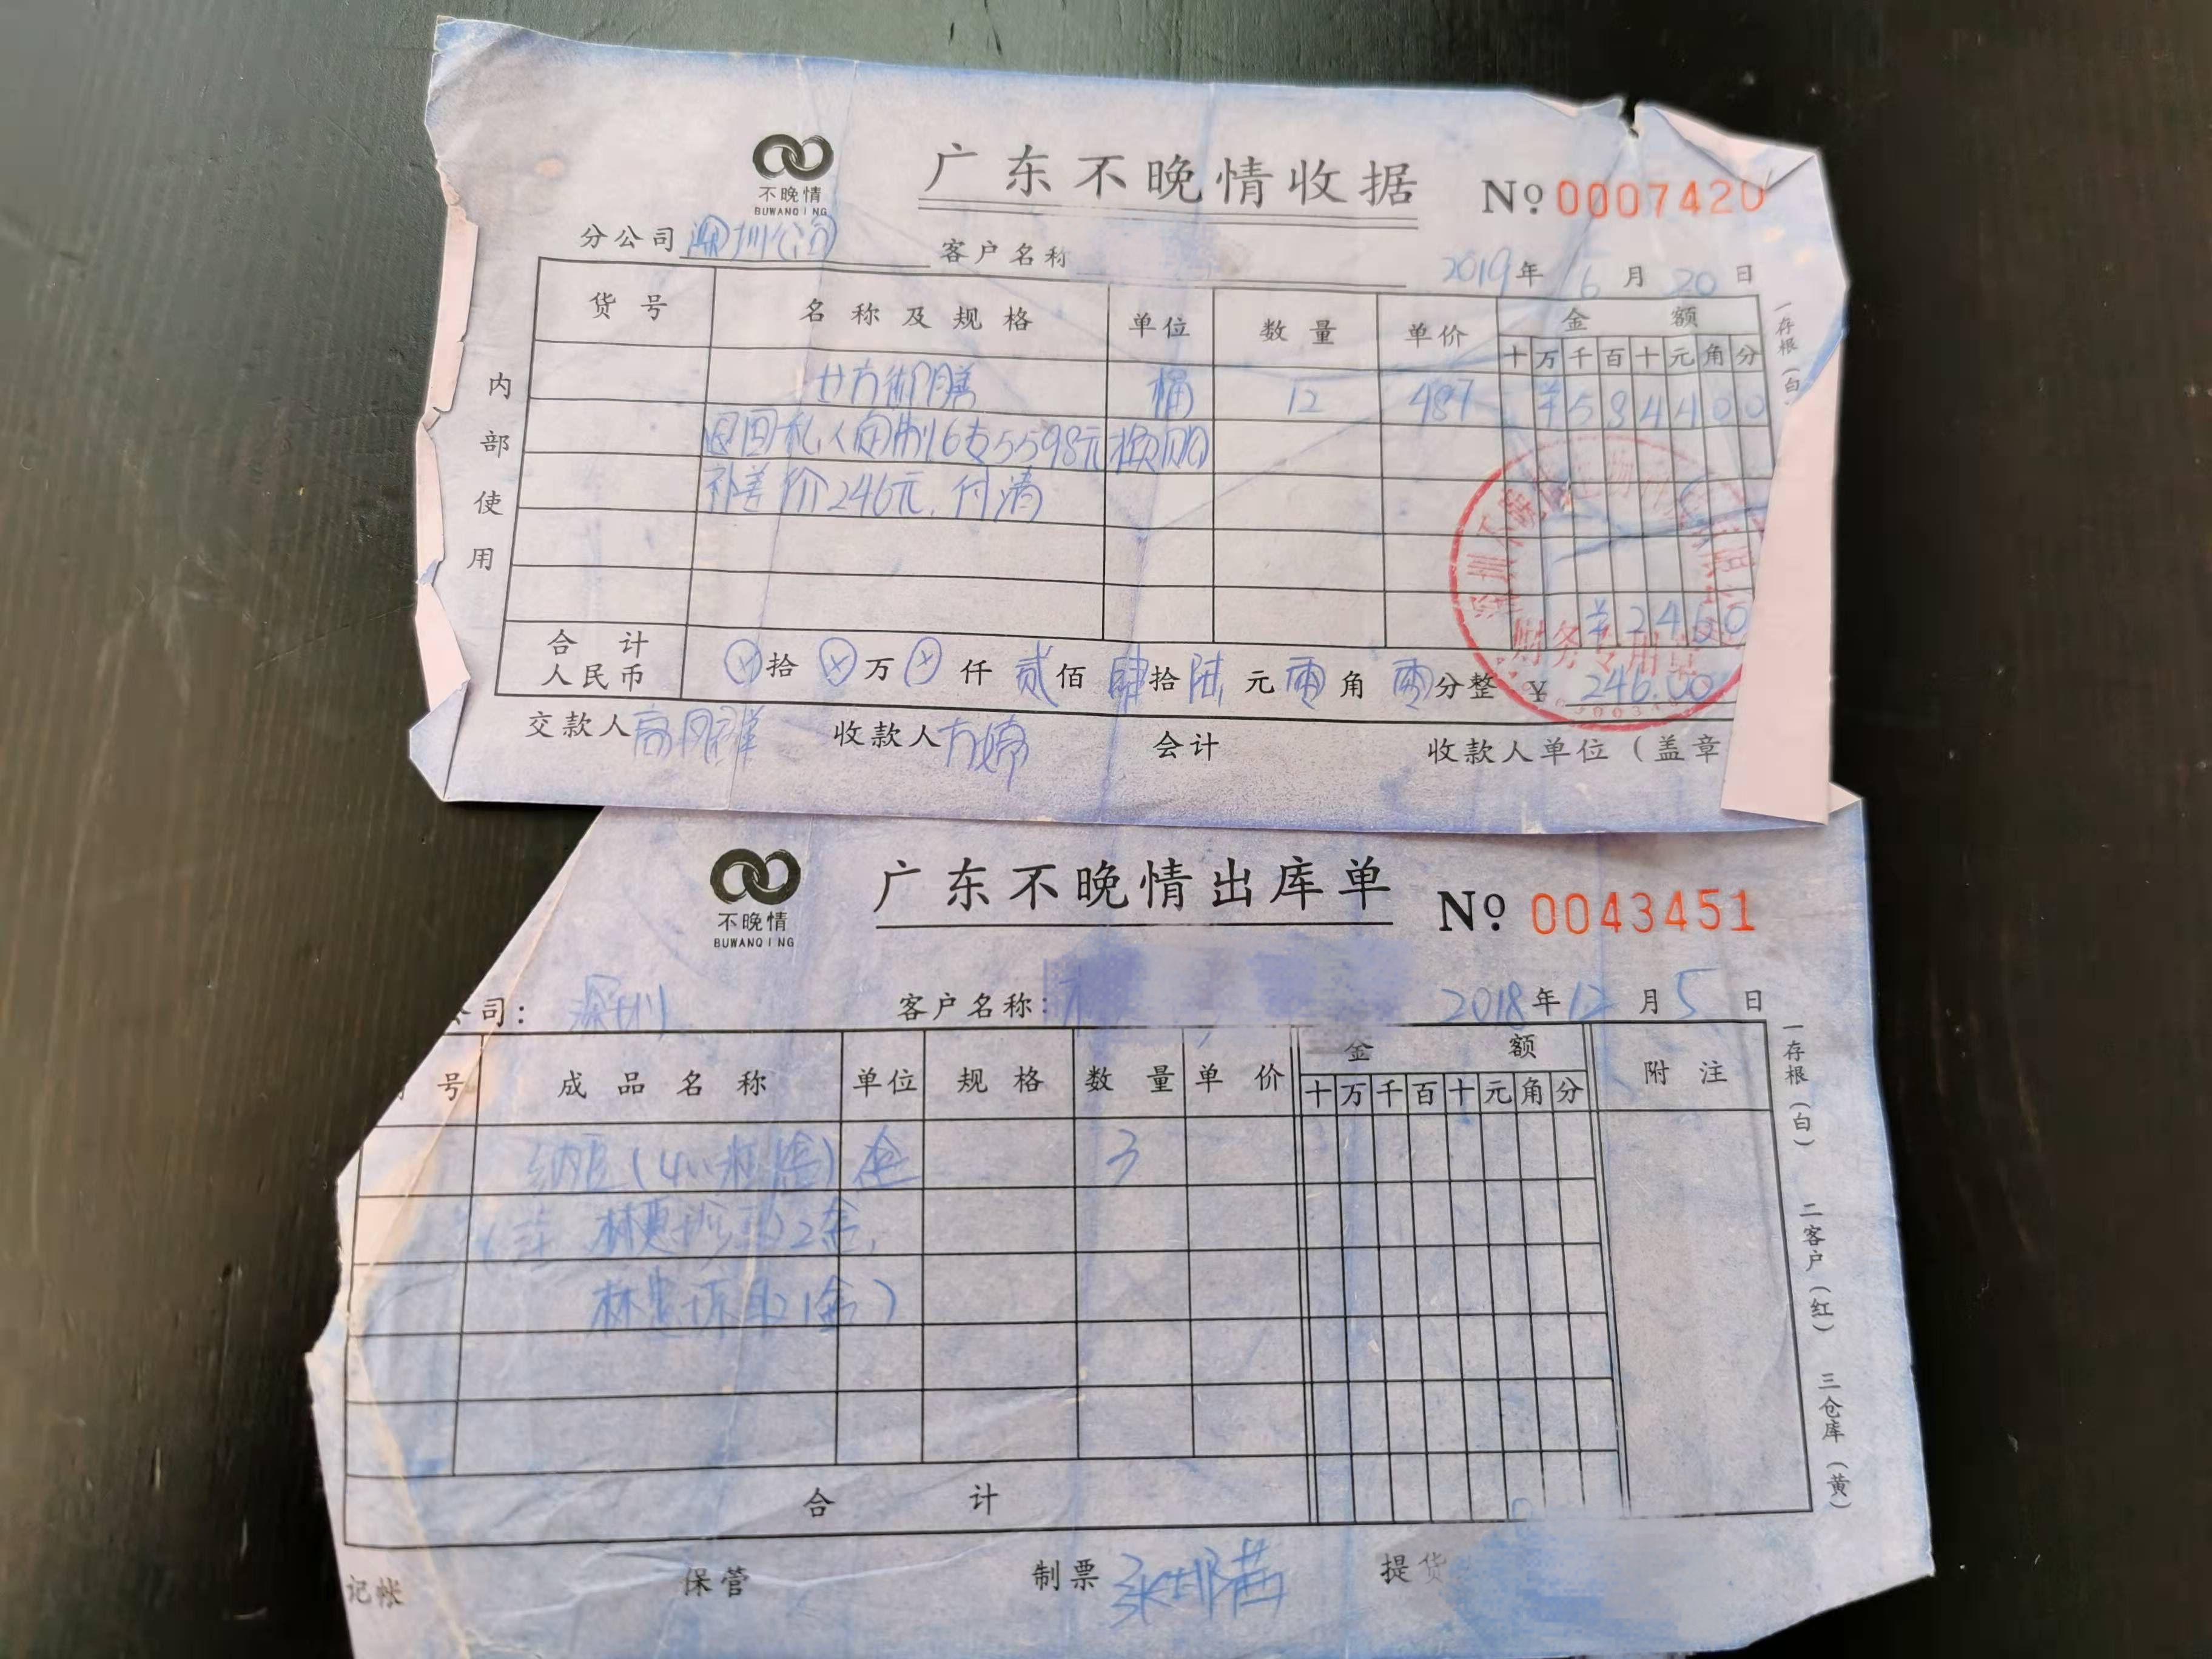 不晚情
BUWANQING
广东不晚情收据
No 0007420
分公司 深圳公司 客户名称
2019年 6月 20日
货号 名称及规格 单位 数量 单价 金额
十万千百十元角分
桶 12 487 ¥584400
私人定制6支5598元换购
补差价246元.付清
¥2460
合计人民币 拾 万 仟 贰佰 肆拾 陆元 零角 零分整 ¥ 246.00
交款人 收款人 方婷 会计 收款人单位(盖章
内部使用
一存根(白)
财务专用章
不晚情
BUWANQING
广东不晚情出库单
No 0043451
司: 深圳 客户名称:
2018年12月5日
号 成品名称 单位 规格 数量 单价 金额 附注
十万千百十元角分
盒 3
2盒,
1盒)
合计
记帐 保管 制票 提货
一存根(白) 二客户(红) 三仓库(黄)